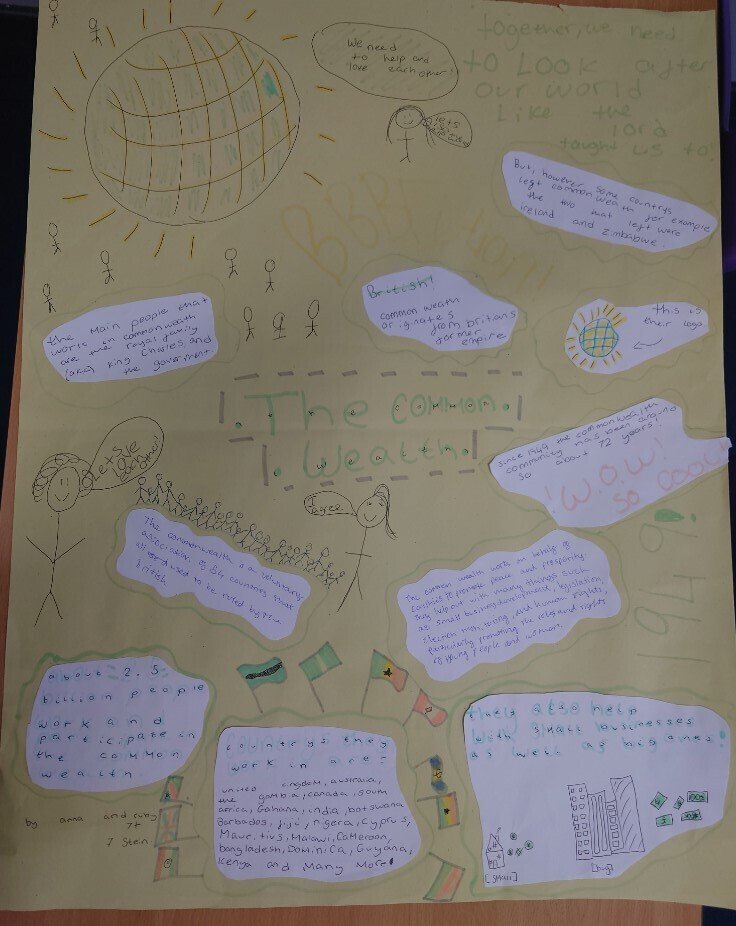 We need
to help and
love each other!
together, we need
to Look after
our world
Like the
lord
taught us to!
But, however some countrys
left commonwealth for example
the two that left were
ireland and Zimbabwe.
the main people that
work in commonwealth
are the royal family
(aka) king Charles, and
the goverment
British!
common weath
originates
from britans
former
empire
this is
their logo
The common
wealth!
since 1949 the commonwealth
community has been around
so about 72 years!
!W.O.W!
so cool
1949!
I agree
The commonwealth is a voluntary
association of 54 countries that
used to be ruled by the
british.
The common wealth works on behalf of
countries to promote peace and prosperity.
they help out with many things such
as small business development, legislation,
and human rights,
particularly promoting the roles and rights
of young people and women.
about 2.5
billion people
work and
participate in
the common
wealth
countrys they
work in are:
united kingdom, australia,
the gambia, canada, south
africa, Gahana, india, botswana
Barbados, fiji, nigera, Cyprus,
Maurotius, Malawi, Cameroon,
bangladesh, Dominica, Guyana,
Kenya and Many More!
they also help
with small businesses
as well as big ones!
[small]
[big]
by anna and ruby
7t
7 Stein